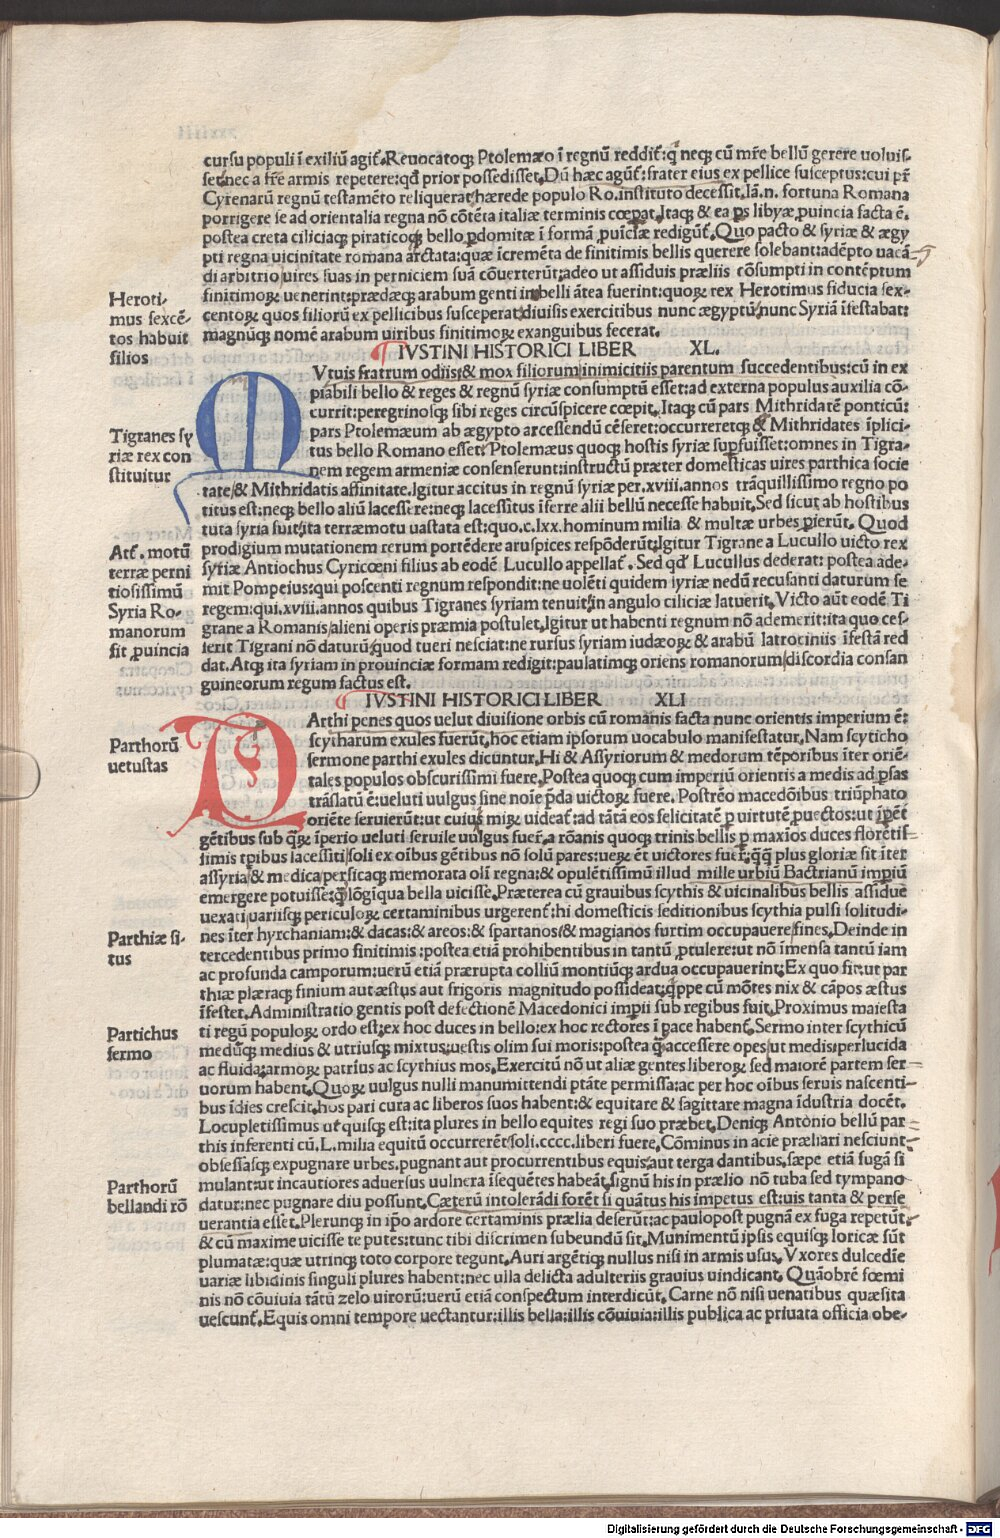 cursu populi ī exiliū agit᷑. Reuocatoq; Ptolemæo ī regnū reddit᷑: q̇ neq; cū mr̄e bellū gerere uoluis-
set: nec a fr̄e armis repetere: qḋ prior possedisset. Dū hæc agūt᷑: frater eius ex pellice susceptus: cui pr̄
Cyrenarū regnū testamēto reliquerat/ hærede populo Ro. instituto decessit. Iā. n. fortuna Romana
porrigere se ad orientalia regna nō cōtēta italiæ terminis cœpat. Itaq; & ea ꝑs libyæ ꝓuincia facta ē.
postea creta ciliciaq; piraticoq; bello ꝑdomitæ ī formā ꝓuīciæ rediguṫ. Quo pacto & syriæ & ægy
pti regna uicinitate romana arctata: quæ icremēta de finitimis bellis querere solebant: adēpto uacā-
di arbitrio/ uires suas in perniciem suā cōuerterūt: adeo ut assiduis præliis cōsumpti in contēptum
finitimoꝝ uenerint: prædæq; arabum genti inbelli ātea fuerint: quoꝝ rex Herotimus fiducia sex-
centoꝝ quos filiorū ex pellicibus susceperat: diuisis exercitibus nunc ægyptū/ nunc Syriā ifestabat:
magnūq; nomē arabum uiribus finitimoꝝ exanguibus fecerat.
Heroti-
mus sexcē-
tos habuit
filios
IVSTINI HISTORICI LIBER XL.
MVtuis fratrum odiis: & mox filiorum inimicitiis parentum succedentibus: cū in ex
piabili bello & reges & regnū syriæ consumptū esset: ad externa populus auxilia cō-
currit: peregrinosq; sibi reges circūspicere cœpit. Itaq; cū pars Mithridatē ponticū:
pars Ptolemæum ab ægypto arcessendū cēseret: occurreretq; & Mithridates īplici-
tus bello Romano esset: Ptolemæus quoq; hostis syriæ sup̱fuisset: omnes in Tigra-
nem regem armeniæ consenserunt: instructū præter domesticas uires parthica socie
tate/ & Mithridatis affinitate. Igitur accitus in regnū syriæ per. xviii. annos trāquillissimo regno po
titus est: neq; bello aliū lacessere: neq; lacessitus īferre alii bellū necesse habuit. Sed sicut ab hostibus
tuta syria fuit: ita terræmotu uastata est: quo. c. lxx. hominum milia & multæ urbes ꝑierūt. Quod
prodigium mutationem rerum portēdere aruspices respōderūt. Igitur Tigrane a Lucullo uicto rex
syriæ Antiochus Cyricœni filius ab eodē Lucullo appellat᷑. Sed qḋ Lucullus dederat: postea ade-
mit Pompeius: qui poscenti regnum respondit: ne uolēti quidem syriæ nedū recusanti daturum se
regem: qui. xviii. annos quibus Tigranes syriam tenuit: in angulo ciliciæ latuerit. Victo aūt eodē Ti
grane a Romanis/ alieni operis præmia postulet. Igitur ut habenti regnum nō ademerit: ita quo ces-
serit Tigrani nō daturū: quod tueri nesciat: ne rursus syriam iudæoꝝ & arabū latrociniis ifestā red
dat. Atq; ita syriam in prouinciæ formam redigit: paulatimq; oriens romanorum/ discordia consan
guineorum regum factus est.
Tigranes sy
riæ rex con
stituitur
Att᷑. motū
terræ perni
tiosissimū
Syria Ro-
manorum
fit ꝓuincia
IVSTINI HISTORICI LIBER XLI
PArthi penes quos uelut diuisione orbis cū romanis facta nunc orientis imperium ē:
scytharum exules fuerūt. hoc etiam ipsorum uocabulo manifestatur. Nam scyticho
sermone parthi exules dicuntur. Hi & Assyriorum & medorum tēporibus iter oriē-
tales populos obscurissimi fuere. Postea quoq; cum imperiū orientis a medis ad ꝑsas
trāslatū ē: ueluti uulgus sine noīe p̄da uictoꝝ fuere. Postrēo macedōibus triūphato
oriēte seruierūt: ut cuius miꝝ uideat᷑: ad tātā eos felicitatē ꝑ uirtutē ꝓuectos: ut īpēt᷑
gētibus sub q̄ꝝ īperio ueluti seruile uulgus fuer̄. a rōanis quoq; trinis bellis ꝑ maxīos duces florētis-
simis tꝑibus lacessiti/ soli ex oībus gētibus nō solū pares: ueꝝ ēt uictores fuer̄: q̄q̄ plus gloriæ sit īter
assyria & medica/ persicaq; memorata olī regna: & opulētissimū illud mille urbiū Bactrianū impiū
emergere potuisse: q̄ lōgiqua bella uicisse. Præterea cū grauibus scythis & uicinalibus bellis assidue
uexati/ uariisq; periculoꝝ certaminibus urgerent᷑: hi domesticis seditionibus scythia pulsi solitudi-
nes īter hyrchaniam: & dacas: & areos: & spartanos/ & magianos furtim occupauere/ fines. Deinde in
tercedentibus primo finitimis: postea etiā prohibentibus in tantū ꝓtulere: ut nō īmensa tantū iam
ac profunda camporum: uerū etiā prærupta colliū montiūq; ardua occupauerint. Ex quo fit: ut par
thiæ plæraq; finium aut æstus aut frigoris magnitudo possideat: q̇ppe cū mōtes nix & cāpos æstus
īfestet. Administratio gentis post defectionē Macedonici impii sub regibus fuit. Proximus maiesta
ti regū populoꝝ ordo est: ex hoc duces in bello: ex hoc rectores ī pace habent᷑. Sermo inter scythicū
medūq; medius & utriusq; mixtus: uestis olim sui moris: postea q̄ accessere opes/ ut medis: perlucida
ac fluida: armoꝝ patrius ac scythius mos. Exercitū nō ut aliæ gentes liberoꝝ sed maiorē partem ser
uorum habent. Quoꝝ uulgus nulli manumittendi ptāte permissa: ac per hoc oībus seruis nascenti-
bus īdies crescit. hos pari cura ac liberos suos habent: & equitare & sagittare magna īdustria docēt.
Locupletissimus ut quisq; est: ita plures in bello equites regi suo præbet. Deniq; Antonio bellū par
this inferenti cū. L. milia equitū occurrerēt/ soli. cccc. liberi fuere. Cōminus in acie præliari nesciunt-
obsessasq; expugnare urbes. pugnant aut procurrentibus equis: aut terga dantibus. sæpe etiā fugā si
mulant: ut incautiores aduersus uulnera isequētes habeāt. signū his in prælio nō tuba sed tympano
datur: nec pugnare diu possunt. Cæterū intolerādi forēt si quātus his impetus est: uis tanta & perse
uerantia esset. Plerunq; in ip̄o ardore certaminis prælia deserūt: ac paulopost pugnā ex fuga repetūt.
& cū maxime uicisse te putes: tunc tibi discrimen subeundū sit. Munimentū ipsis equisq; loricæ sūt
plumatæ: quæ utrinq; toto corpore tegunt. Auri argētiq; nullus nisi in armis usus. Vxores dulcedīe
uariæ libidinis singuli plures habent: nec ulla delicta adulteriis grauius uindicant. Quāobrē fœmi
nis nō cōuiuia tātū zelo uirorū: uerū etiā conspectum interdicūt. Carne nō nisi uenatibus quæsita
uescunt᷑. Equis omni tempore uectantur: illis bella: illis cōuiuia: illis publica ac priuata officia obe-
Parthorū
uetustas
Parthiæ si-
tus
Partichus
sermo
Parthorū
bellandi rō
Digitalisierung gefördert durch die Deutsche Forschungsgemeinschaft - DFG